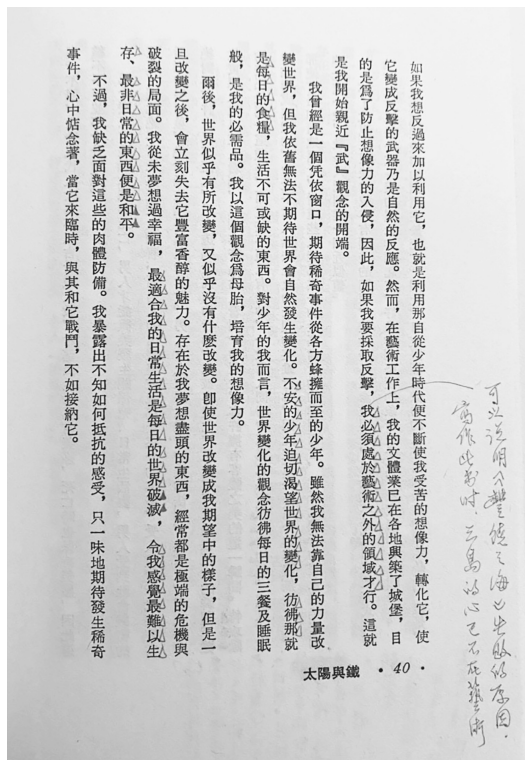 可以說明《豐饒之海》失敗的原因.
寫作此書時 三島的心已不在藝術
太陽與鐵 • 40 •
如果我想反過來加以利用它，也就是利用那自從少年時代便不斷使我受苦的想像力，轉化它，使
它變成反擊的武器乃是自然的反應。然而，在藝術工作上，我的文體業已在各地興築了城堡，目
的是爲了防止想像力的入侵，因此，如果我要採取反擊，我必須處於藝術之外的領域才行。這就
是我開始親近『武』觀念的開端。
我曾經是一個凭依窗口，期待稀奇事件從各方蜂擁而至的少年。雖然我無法靠自己的力量改
變世界，但我依舊無法不期待世界會自然發生變化。不安的少年迫切渴望世界的變化，彷彿那就
是每日的食糧，生活不可或缺的東西。對少年的我而言，世界變化的觀念彷彿每日的三餐及睡眠
般，是我的必需品。我以這個觀念爲母胎，培育我的想像力。
爾後，世界似乎有所改變，又似乎沒有什麼改變。卽使世界改變成我期望中的樣子，但是一
旦改變之後，會立刻失去它豐富香醇的魅力。存在於我夢想盡頭的東西，經常都是極端的危機與
破裂的局面。我從未夢想過幸福，最適合我的日常生活是每日的世界破滅，令我感覺最難以生
存、最非日常的東西便是和平。
不過，我缺乏面對這些的肉體防備。我暴露出不知如何抵抗的感受，只一味地期待發生稀奇
事件，心中惦念著，當它來臨時，與其和它戰鬥，不如接納它。